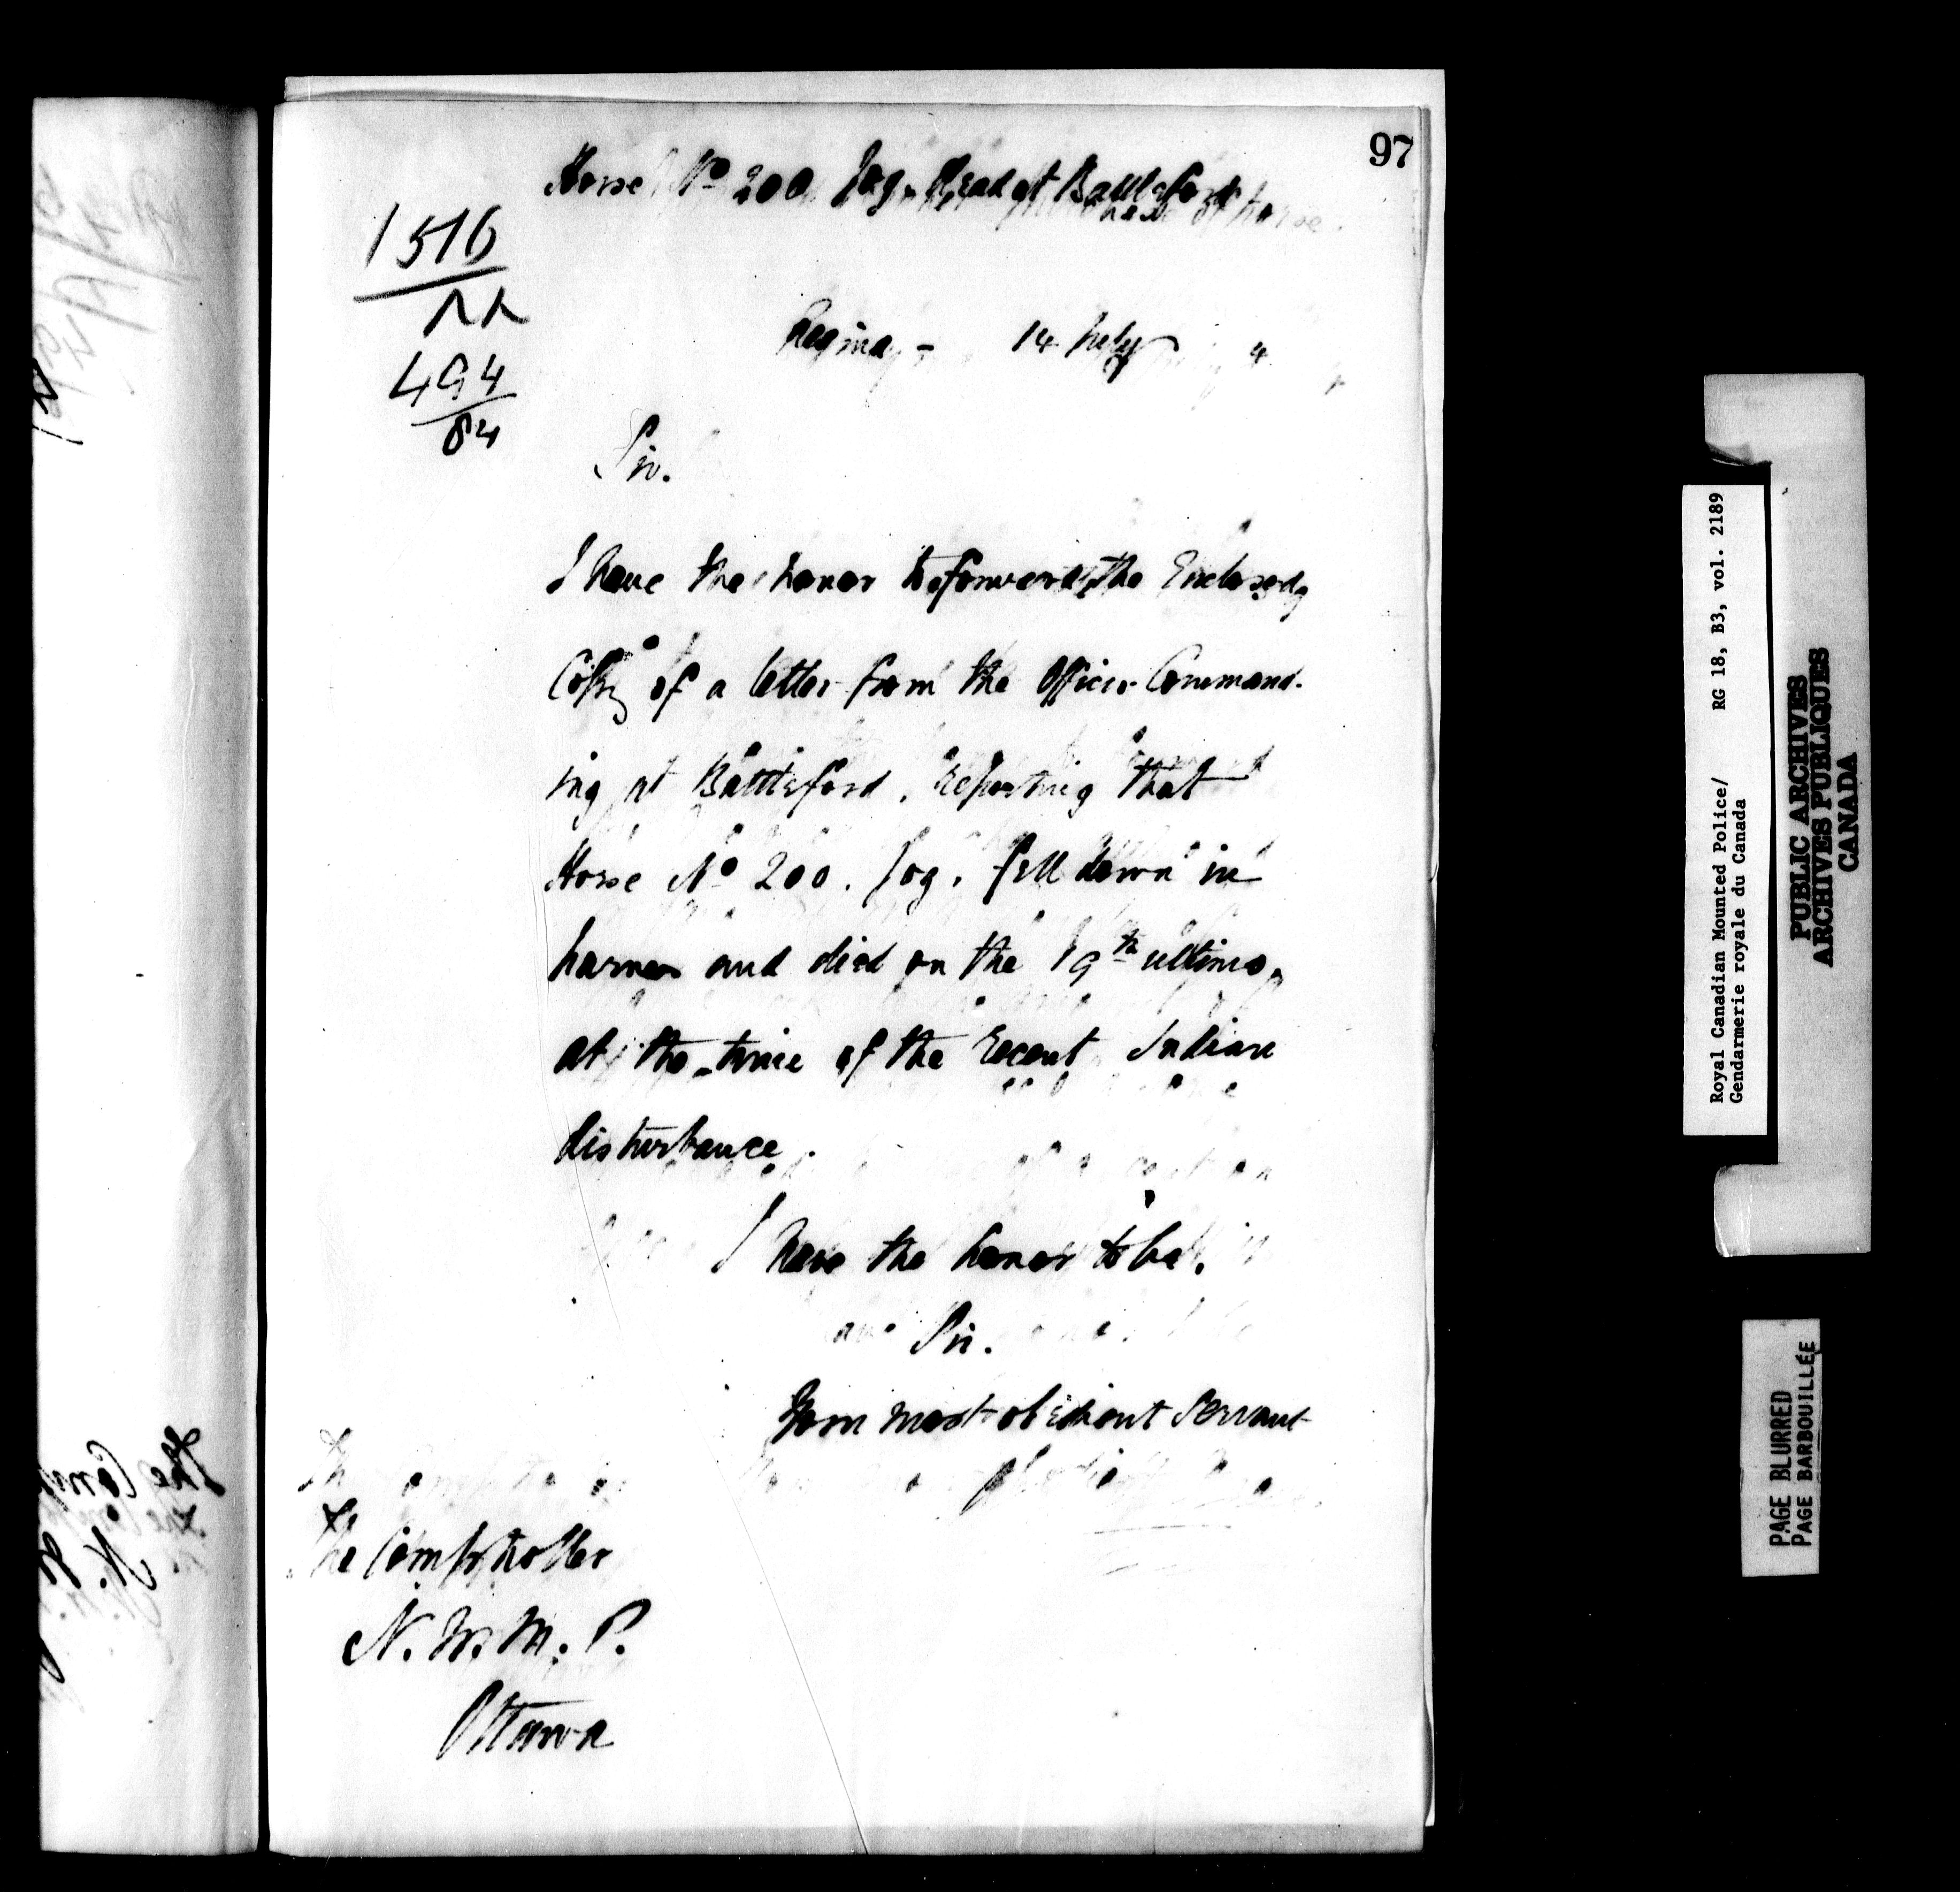 97
Horse No 200 Jog. Dead at Battleford
1516
494
84
Regina - 14 July 4
Sir.
I have the honor to forward the Enclosed
Copy of a letter from the Officer Command-
ing at Battleford, reporting that
Horse No 200. Jog. fell down in
harness and died on the 19th ultimo,
at the time of the recent Indian
disturbance.
I have the honor to be.
Sir.
Your most obedient servant
The Comptroller
N. W. M. P.
Ottawa
Royal Canadian Mounted Police/ RG 18, B3, vol. 2189
Gendarmerie royale du Canada
PUBLIC ARCHIVES
ARCHIVES PUBLIQUES
CANADA
PAGE BLURRED
PAGE BARBOUILLÉE